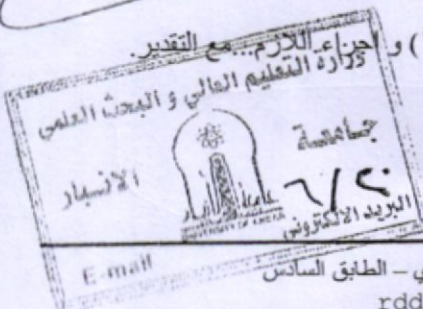 ) و اجراء اللازم...مع التقدير.
وزارة التعليم العالي و البحث العلمي
جامعة
الانبار
UNIVERSITY OF ANBAR
٢٠/٦
البريد الالكتروني
E-mail
ي – الطابق السادس
rdd